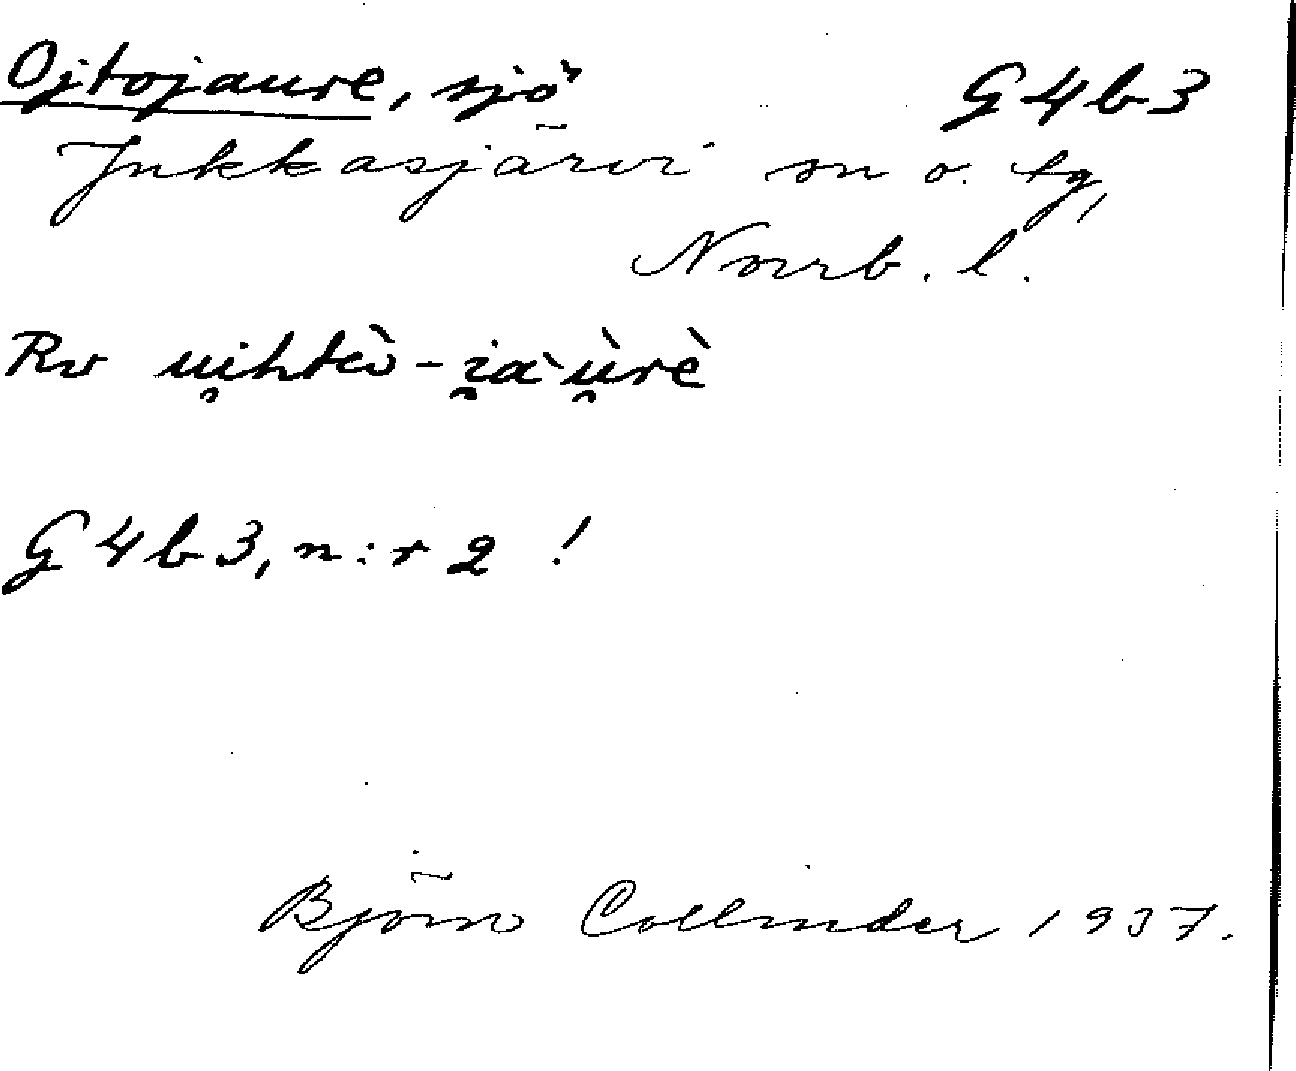 Ojtojaure, sjö G4b3
Jukkasjärvi sn o. tg,
Norrb. l.
Rv u̯ihtèv-i̯àu̯rè
G4b3, n:r 2 !
Björn Collinder 1937.